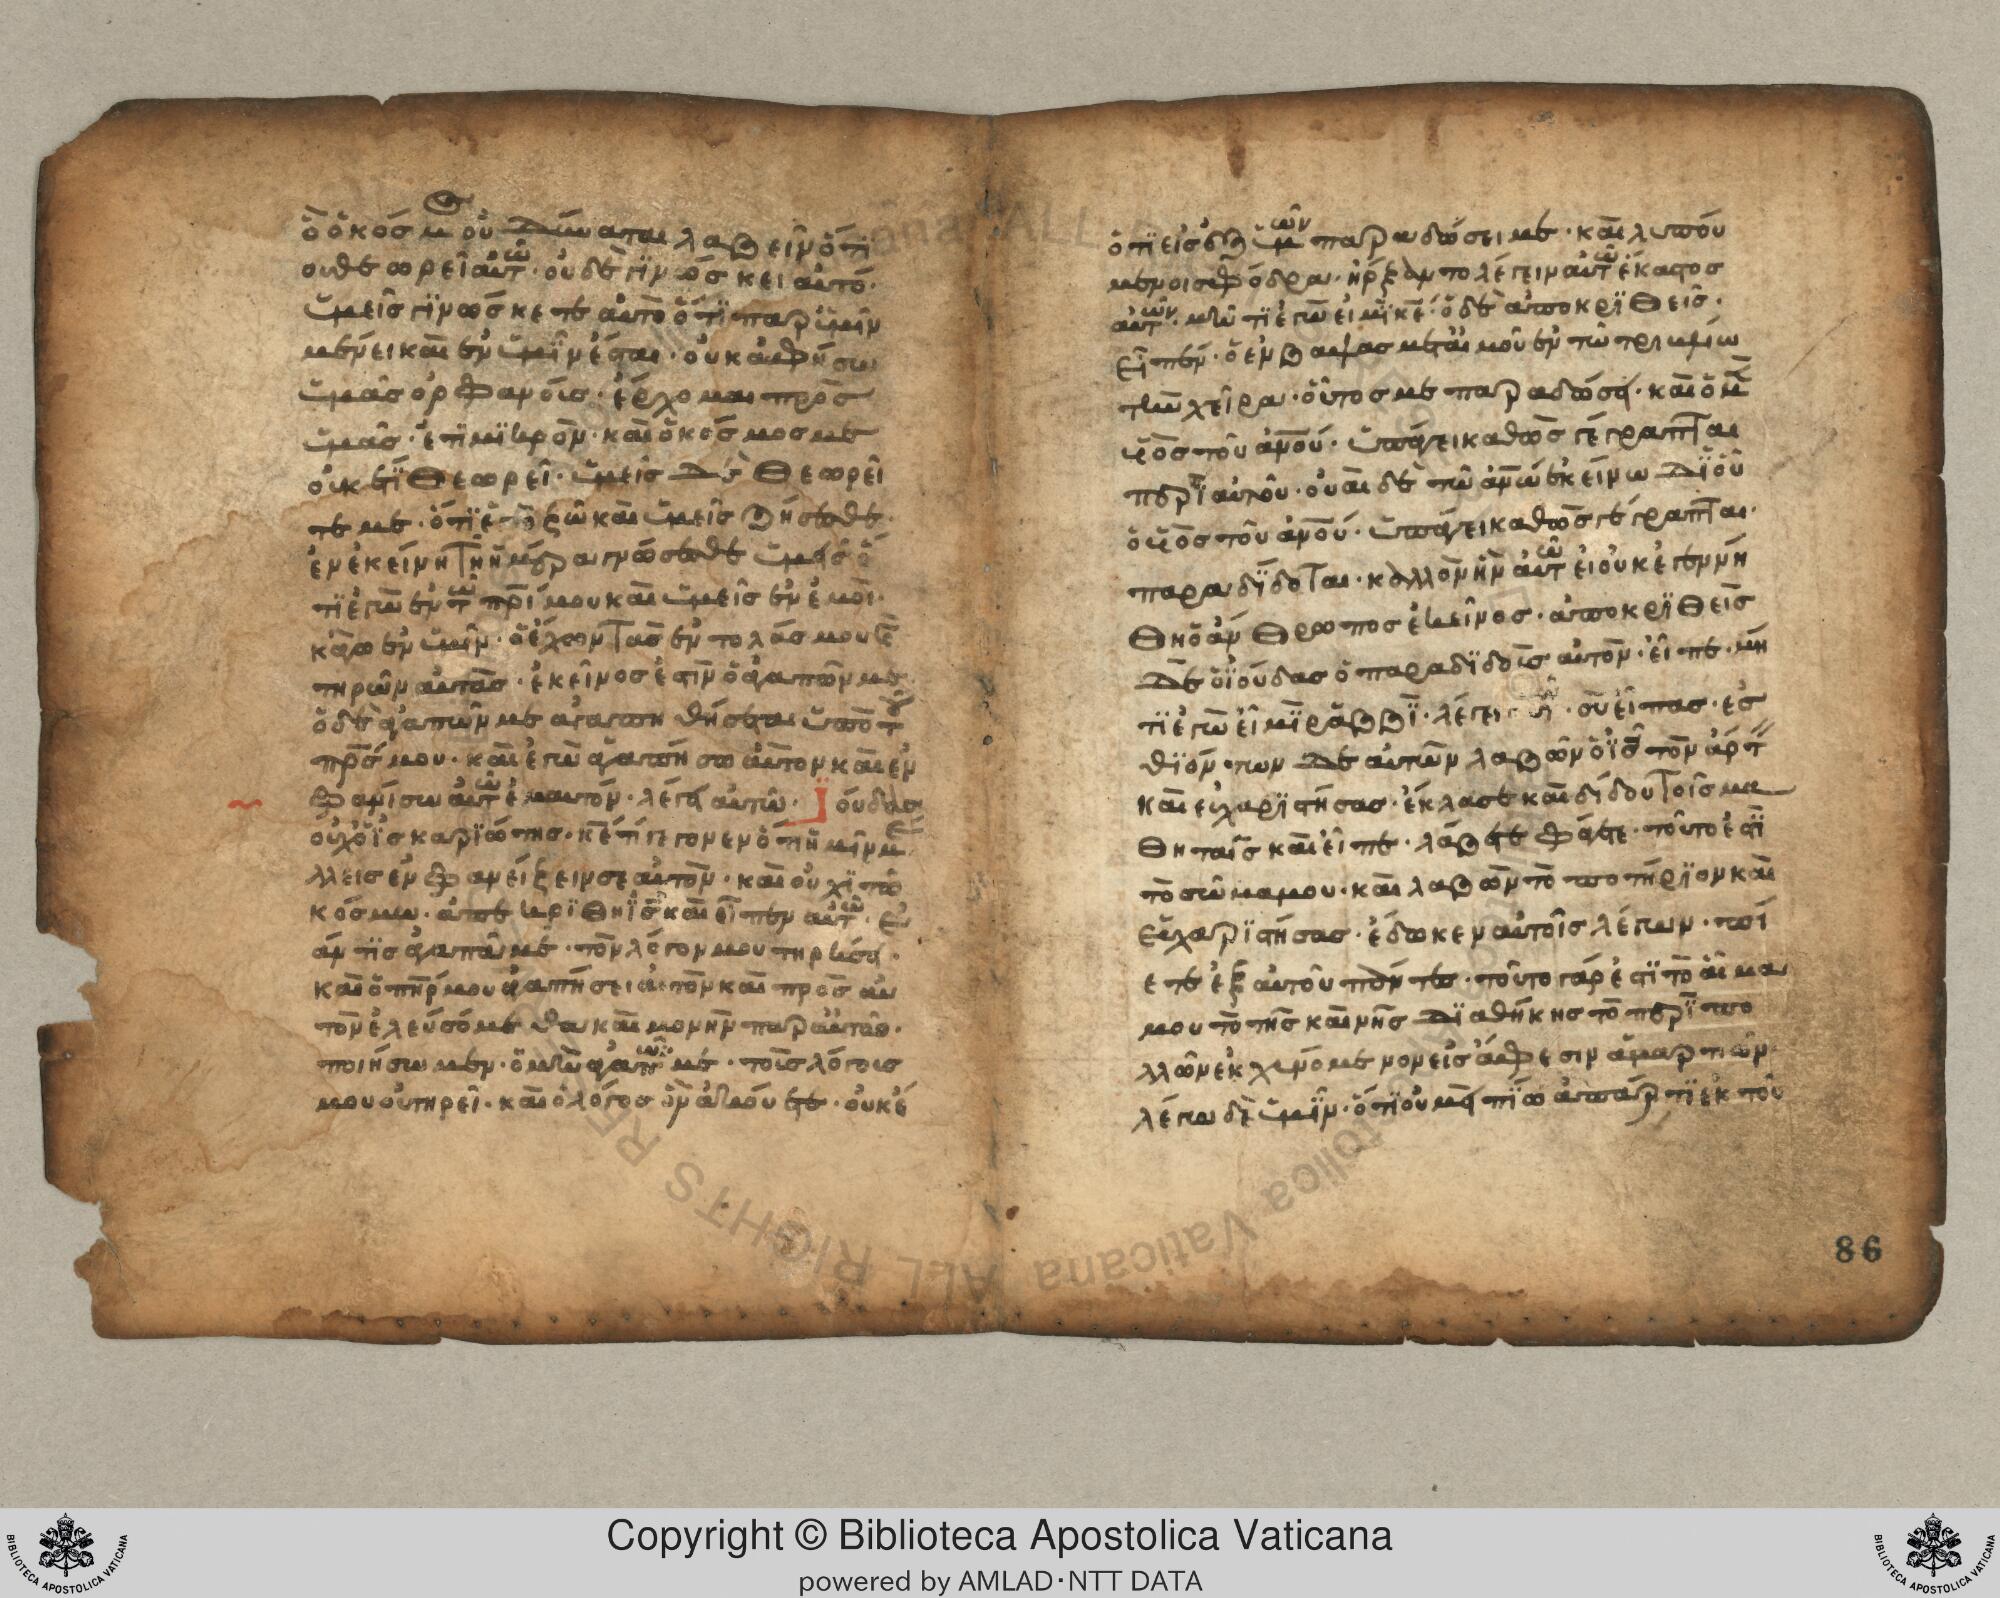 ὃ ὁ κόσμου οὐ δύναται λαβεῖν ὅτι
οὐ θεωρεῖ αὐτῶ· οὐδὲ γινώσκει αὐτό·
ὑμεῖς γινώσκετε αὐτὸ ὅτι παρ ὑμῖν
μένει καὶ ἐν ὑμῖν ἔσται· οὐκ ἀφήσω
ὑμᾶς ὀρφανούς· ἔρχομαι πρὸς
ὑμᾶς· ἔτι μικρὸν· καὶ ὁ κόσμος με
οὐκ ἔτι θεωρεῖ· ὑμεῖς δὲ θεωρεῖ
τε με· ὅτι ἐγὼ ζῶ καὶ ὑμεῖς ζήσεσθε·
ἐν ἐκείνη τῇ ἡμέρα γνώσεσθε ὑμεῖς ὅ
τι ἐγὼ ἐν τῶ πρι μου καὶ ὑμεῖς ἐν ἐμοὶ·
κἀγὼ ἐν ὑμῖν· ὁ ἔχων τὰς ἐντολάς μου καὶ
τηρῶν αὐτὰς· ἐκεῖνος ἐστὶν ὁ ἀγαπῶν με·
ὁ δὲ ἀγαπῶν με ἀγαπηθήσεται ὑπὸ τοῦ
πρς μου· καὶ ἐγὼ ἀγαπήσω αὐτον καὶ ἐμ
φανίσω αὐτῶ ἐμαυτόν· λέγει αὐτῶ· Ἰούδας
οὐχ ὁ ἰσκαριώτης· κε τί γέγονεν ὅτι ἡμῖν μέ
λλεις ἐμφανείζειν σεαυτὸν· καὶ οὐχὶ τῶ
κόσμω· ἀπεκρίθη ὁ ις καὶ εἶπεν αὐτῶ· ἐὰν
τις ἀγαπᾶ με· τὸν λόγον μου τηρήσει·
καὶ ὁ πηρ μου ἀγαπήσει αὐτὸν καὶ πρὸς αὐ
τὸν ἐλευσόμεθα καὶ μονὴν παρ αὐτῶ·
ποιήσωμεν· ὁ μὴ ἀγαπῶν με· τοὺς λόγους
μου οὐ τηρεῖ· καὶ ὁ λόγος ὃν ἀκούετε· οὐκ ἔ
ὅτι εἷς ἐξ ὑμῶν παραδώσει με· καὶ λυπού
μενοι σφόδρα· ἤρξαντο λέγειν αὐτῶ ἕκαστος
αὐτῶν· μή τι ἐγὼ εἰμὶ κε· ὁ δὲ ἀποκριθεὶς·
εἶπεν· ὁ ἐμβάψας μετ' ἐμοῦ ἐν τῶ τρυβλίω
τὴν χεῖρα· οὗτος με παραδώσει· καὶ ὁ μὲν
υἱὸς τοῦ ανου· ὑπάγει καθὼς γέγραπται
περὶ αὐτοῦ· οὐαὶ δὲ τῶ ανω ἐκείνω δι' οὗ
ὁ υἱὸς τοῦ ανου· ὑπάγει καθὼς γέγραπται·
παραδίδοται· καλλὸν ἦν αὐτῶ εἰ οὐκ ἐγεννή
θη ὁ ἄνθρωπος ἐκεῖνος· ἀποκριθεὶς
δὲ ὁ ἰούδας ὁ παραδιδοὺς αὐτὸν· εἶπε· μή
τι ἐγὼ εἰμὶ ῥαββί· λέγει · σὺ εἶπας· ἐσ
θιόντων δὲ αὐτῶν λαβὼν ὁ ις τὸν ἄρτ
καὶ εὐχαριστήσας· ἔκλασε καὶ δίδου τοῖς μα
θηταῖς καὶ εἶπε· λάβετε φάγετε· τοῦτο ἐστὶ
τὸ σῶμα μου· καὶ λαβὼν τὸ ποτήριον καὶ
εὐχαριστήσας· ἔδωκεν αὐτοῖς λέγων· πί
ετε ἐξ αὐτοῦ πάντες· τοῦτο γάρ ἐστι τὸ αἷμα
μου τὸ τῆς καινῆς διαθήκης τὸ περὶ πο
λλῶν ἐκχυνόμενον εἰς ἄφεσιν ἁμαρτιῶν·
λέγω δὲ ὑμῖν· ὅτι οὐ μὴ πίω ἀπάρτι ἐκ τοῦ
86
Copyright © Biblioteca Apostolica Vaticana
powered by AMLAD·NTT DATA
BIBLIOTECA APOSTOLICA VATICANA
BIBLIOTECA APOSTOLICA VATICANA